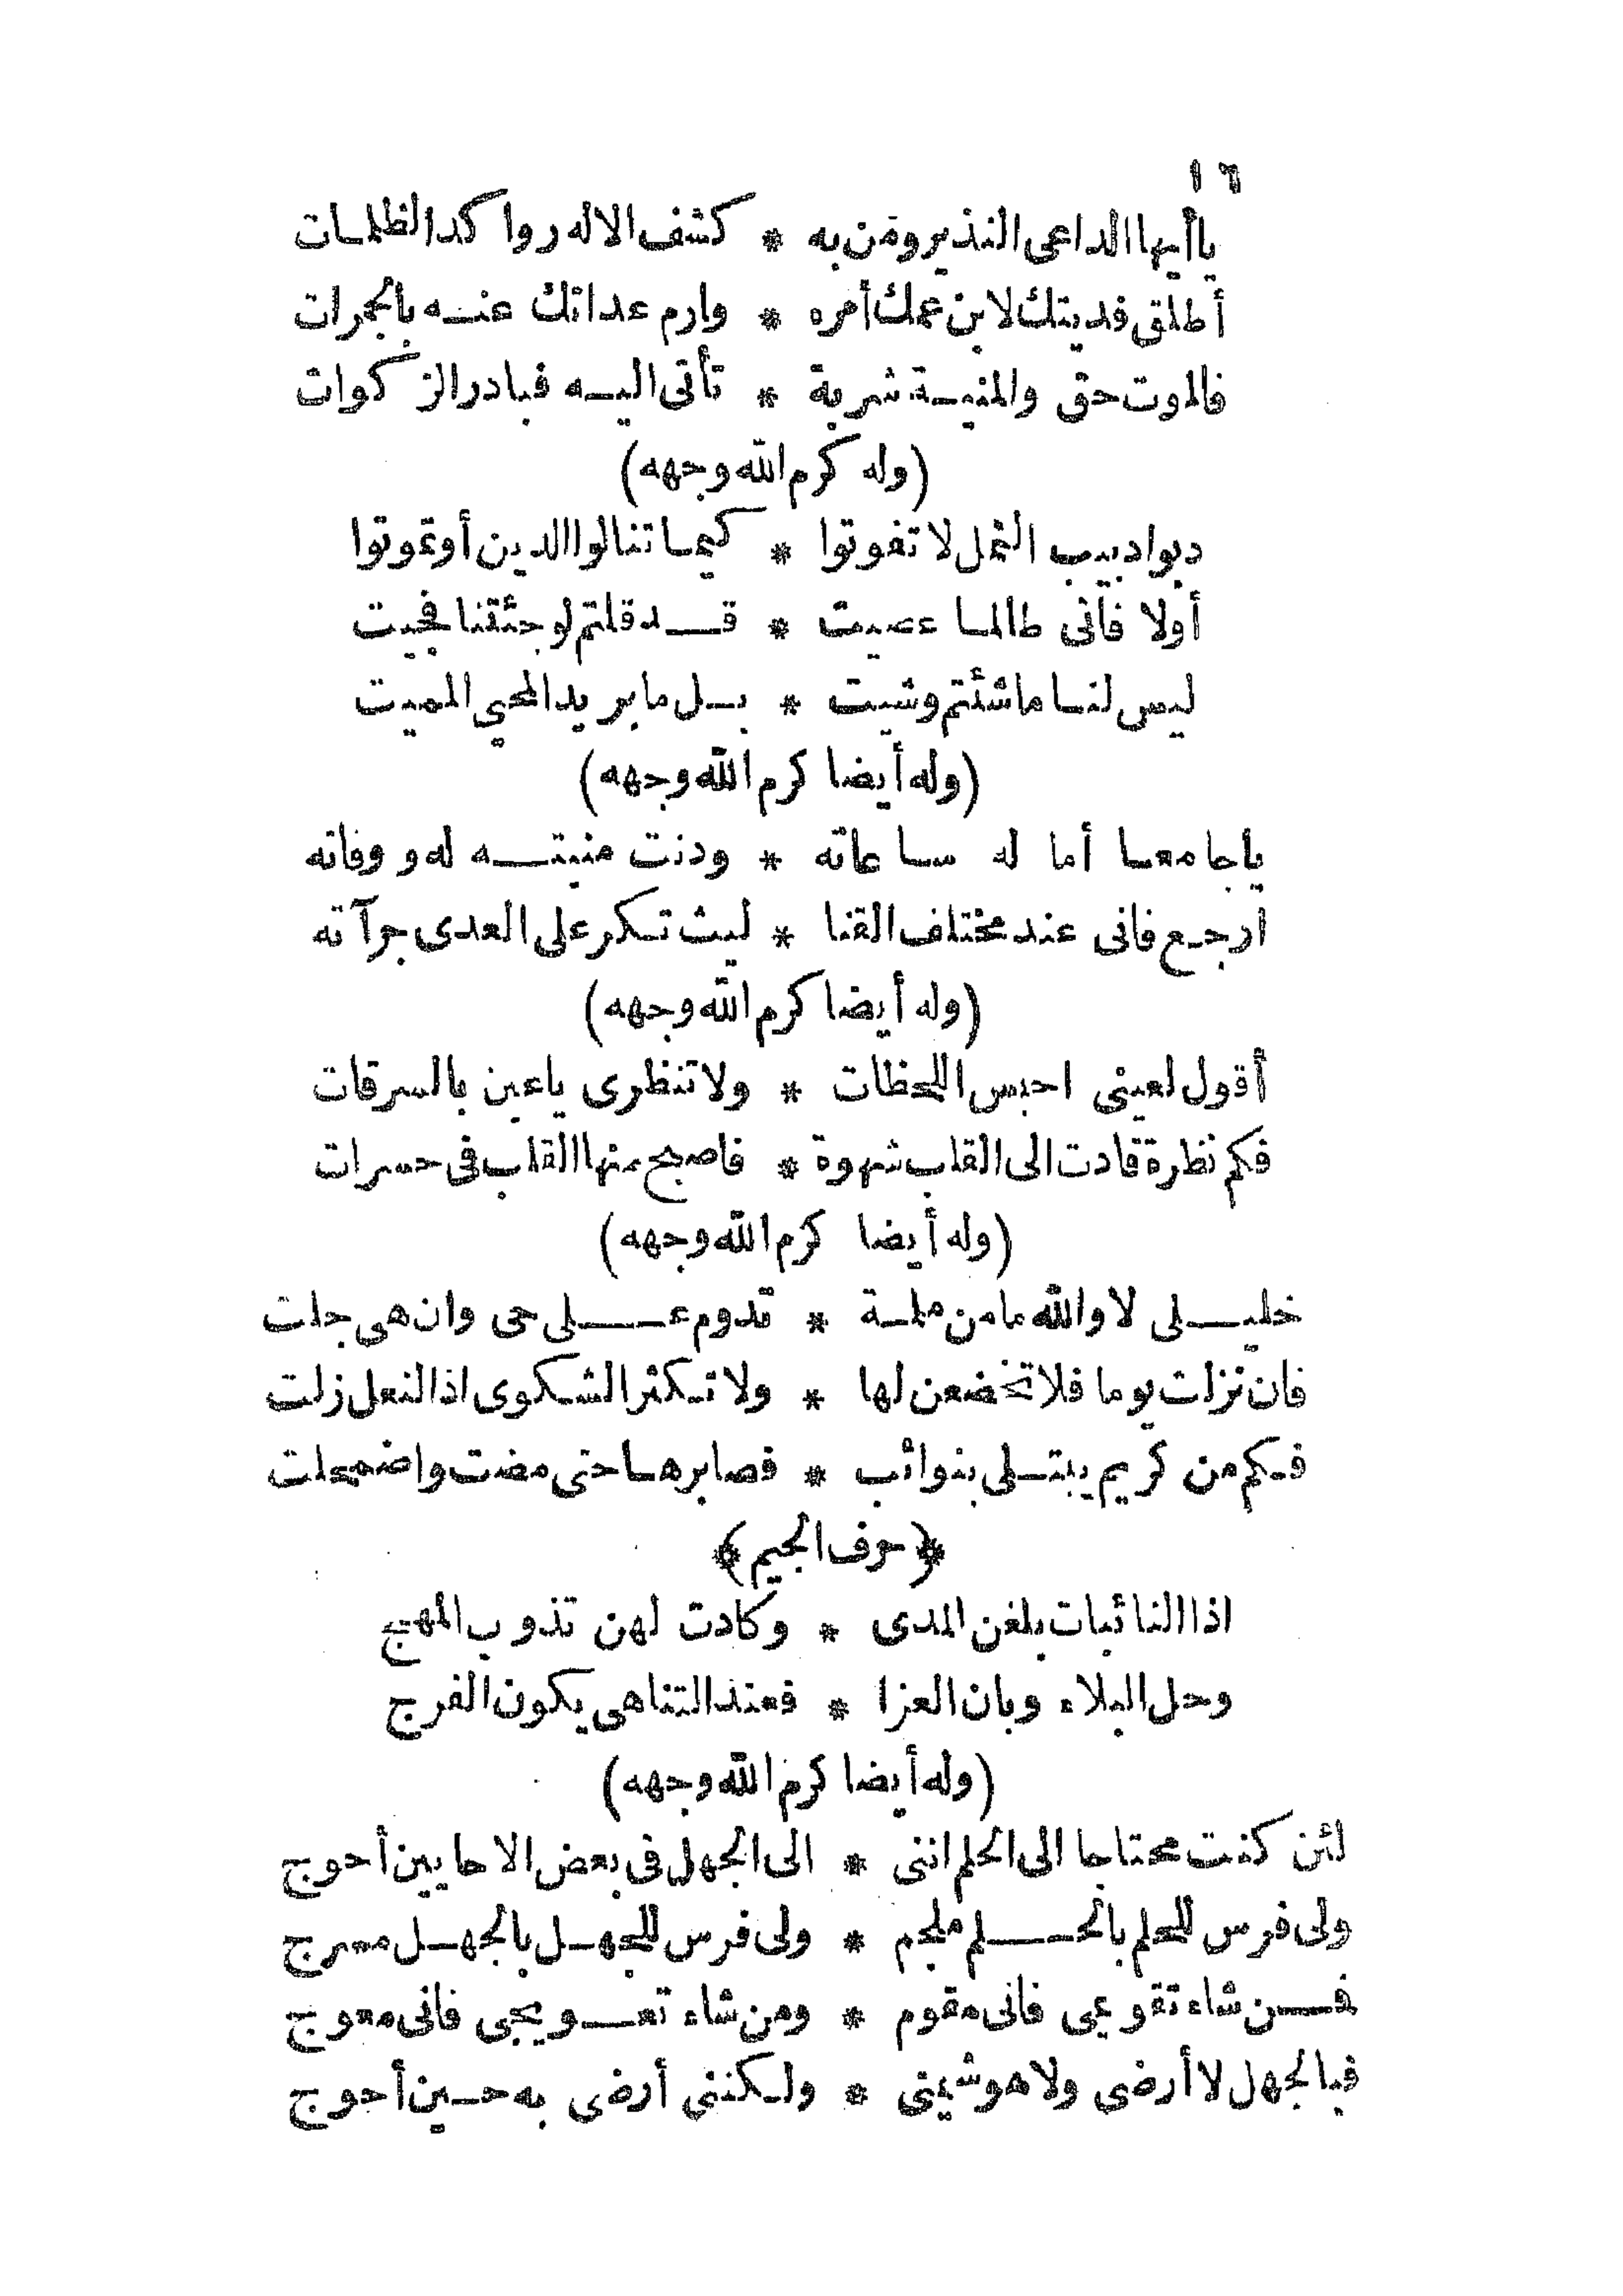 ١٦
ياأيها الداعى النذير ومن به * كشف الاله رواكد الظلمات
أطلق فديتك لابن عمك أمره * وارم عداتك عنه بالجمرات
فالموت حق والمنية شربة * تأتى اليه فبادر الزكوات
(وله كرم الله وجهه)
دبوا دبيب النمل لا تفوتوا * كيما تنالوا الدين أو تموتوا
أولا فانى طالما عصيت * قد قلتم لو جئتنا فجيت
ليس لنا ما شئتم وشيت * بل ما يريد المحيي المميت
(وله أيضا كرم الله وجهه)
ياجامعا أما له ساعاته * ودنت منيته له و وفاته
ارجع فانى عند مختلف القنا * ليث تكر على العدى جرآته
(وله أيضا كرم الله وجهه)
أقول لعينى احبس اللحظات * ولا تنظرى ياعين بالسرقات
فكم نظرة قادت الى القلب شهوة * فاصبح منها القلب فى حسرات
(وله أيضا كرم الله وجهه)
خليلى لا والله ما من ملمة * تدوم على حى وان هى جلت
فان نزلت يوما فلا تخضعن لها * ولا تكثر الشكوى اذا النعل زلت
فكم من كريم يبتلى بنوائب * فصابرها حتى مضت واضمحلت
﴿حرف الجيم﴾
اذا النائبات بلغن المدى * وكادت لهن تذوب المهج
وحل البلاء وبان العزا * فعند التناهى يكون الفرج
(وله أيضا كرم الله وجهه)
لئن كنت محتاجا الى الحلم اننى * الى الجهل فى بعض الاحايين أحوج
ولى فرس للحلم بالحلم ملجم * ولى فرس للجهل بالجهل مسرج
فمن شاء تقويمى فانى مقوم * ومن شاء تعويجى فانى معوج
فبالجهل لا أرضى ولا هو شيتى * ولكننى أرضى به حين أحوج